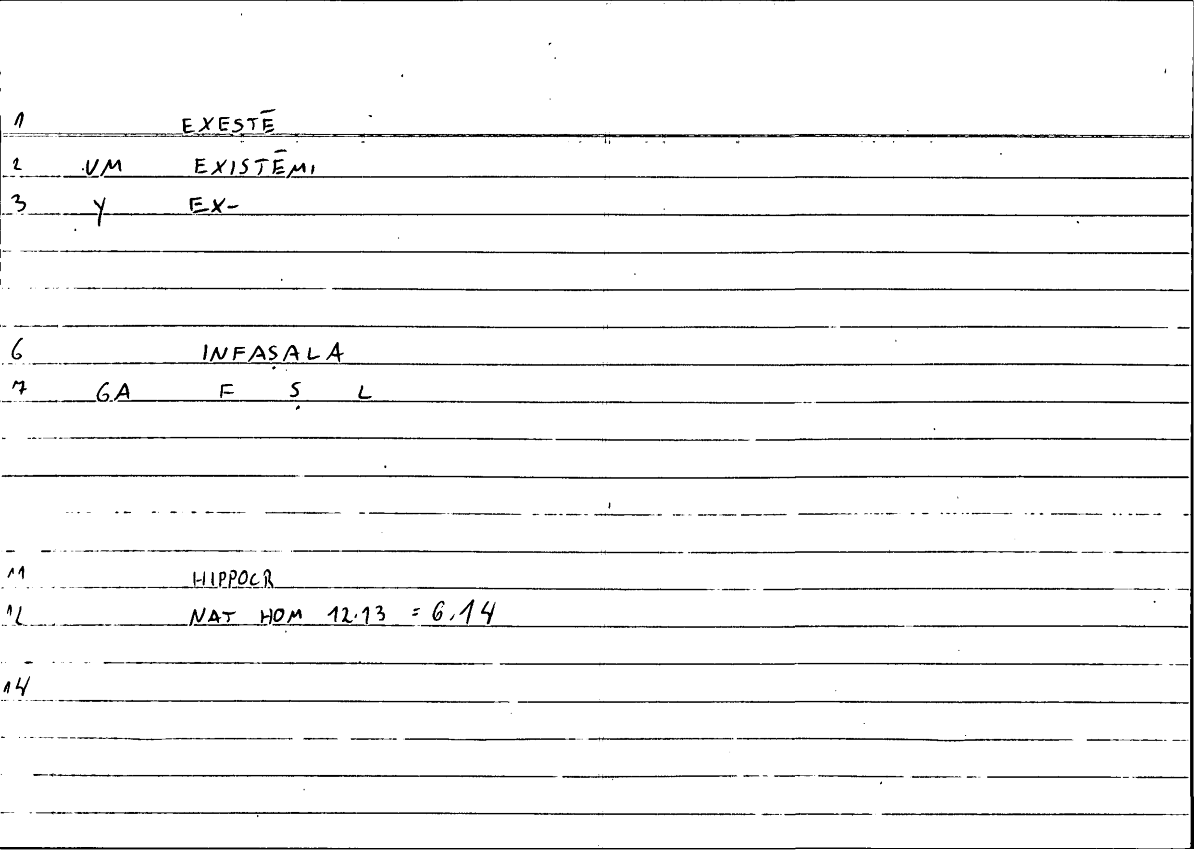 1 EXESTĒ
2 VM EXISTĒMI
3 Y EX-
6 INFAṢALA
7 GA F Ṣ L
11 HIPPOCR
12 NAT HOM 12.13 = 6,14
14